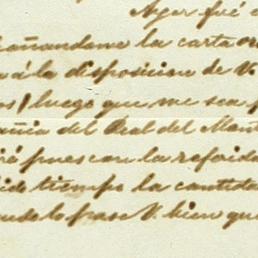 Ayer fué
añandome la carta or
á la disposicion de V.
os, luego que me sea p
añia del Real del Mont
rá pues con la referida
ido tiempo la cantida
V. bien que